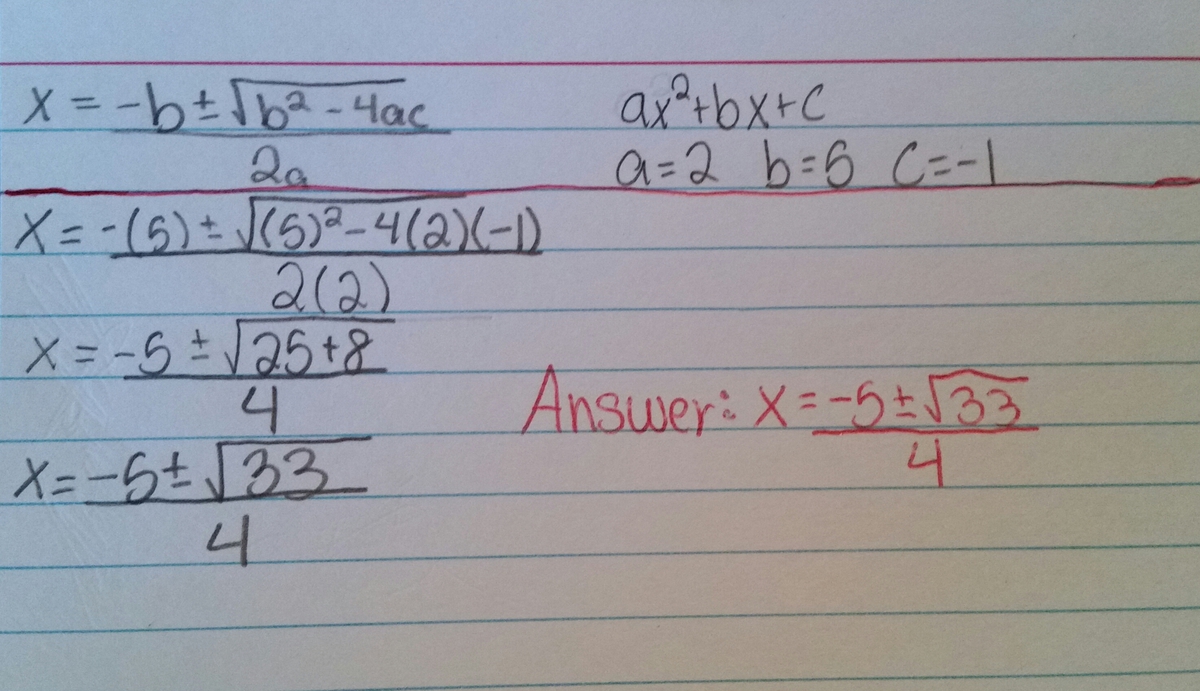 x = -b ± √b² - 4ac / 2a
ax² + bx + c
a = 2 b = 5 c = -1
x = -(5) ± √(5)² - 4(2)(-1) / 2(2)
x = -5 ± √25 + 8 / 4
x = -5 ± √33 / 4
Answer: x = -5 ± √33 / 4